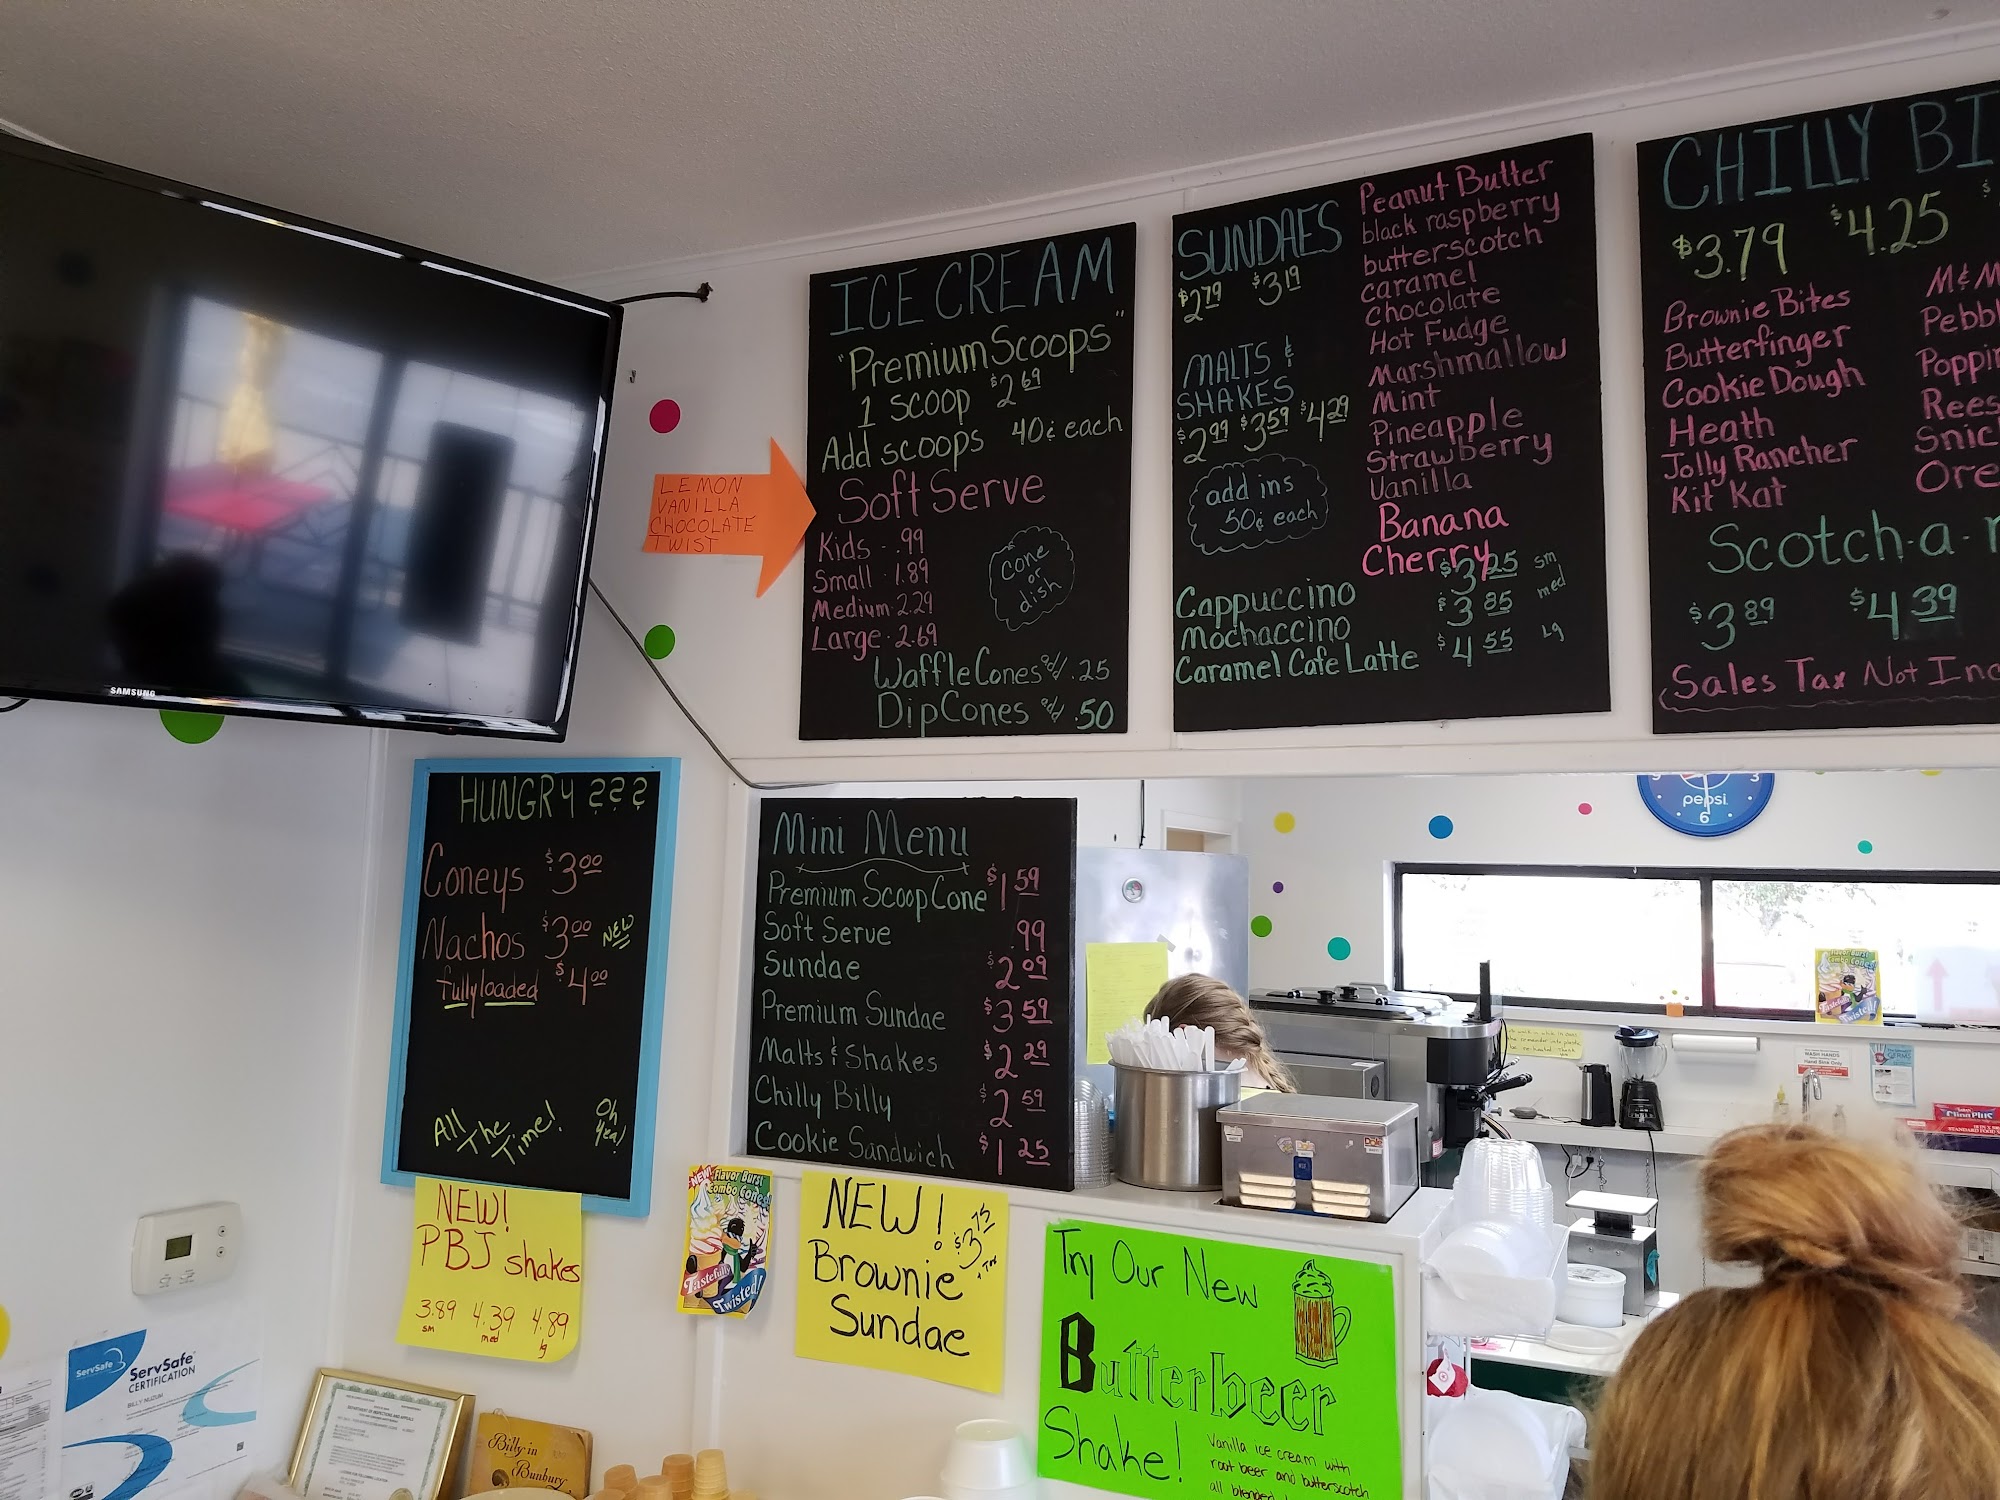 ICE CREAM
"Premium Scoops"
1 scoop $2.69
Add scoops 40¢ each
Soft Serve
Kids - .99
Small - 1.89
Medium - 2.29
Large - 2.69
cone
or
dish
Waffle Cones add .25
Dip Cones add .50
LEMON
VANILLA
CHOCOLATE
TWIST
SUNDAES
$2.79 $3.19
MALTS &
SHAKES
$2.99 $3.59 $4.29
add ins
50¢ each
Peanut Butter
black raspberry
butterscotch
caramel
chocolate
Hot Fudge
Marshmallow
Mint
Pineapple
Strawberry
Vanilla
Banana
Cherry
Cappuccino
Mochaccino
Caramel Cafe Latte
$3.25 sm
$3.85 med
$4.55 Lg
CHILLY BI
$3.79 $4.25 $
Brownie Bites
Butterfinger
Cookie Dough
Heath
Jolly Rancher
Kit Kat
M&M
Pebbl
Poppin
Rees
Snic
Ore
Scotch-a-
$3.89 $4.39
Sales Tax Not Inc
SAMSUNG
HUNGRY ???
Coneys $3.00
Nachos $3.00 NEW
fully loaded $4.00
All The Time!
Oh Yea!
Mini Menu
Premium Scoop Cone $1.59
Soft Serve .99
Sundae $2.09
Premium Sundae $3.59
Malts & Shakes $2.29
Chilly Billy $2.59
Cookie Sandwich $1.25
pepsi
3
6
NEW!
PBJ shakes
3.89 4.39 4.89
sm med lg
NEW!
Flavor Burst
Combo Cones!
Tastefully
Twisted!
NEW!
$3.75
+ Tax
Brownie
Sundae
Try Our New
Butterbeer
Shake!
Vanilla ice cream with
root beer and butterscotch
all blended
ServSafe
ServSafe
CERTIFICATION
BILLY NUZUM
DEPARTMENT OF INSPECTIONS AND APPEALS
Billy in
Bunbury
Flavor Burst
Combo Cones!
WASH HANDS
Hand Sink Only